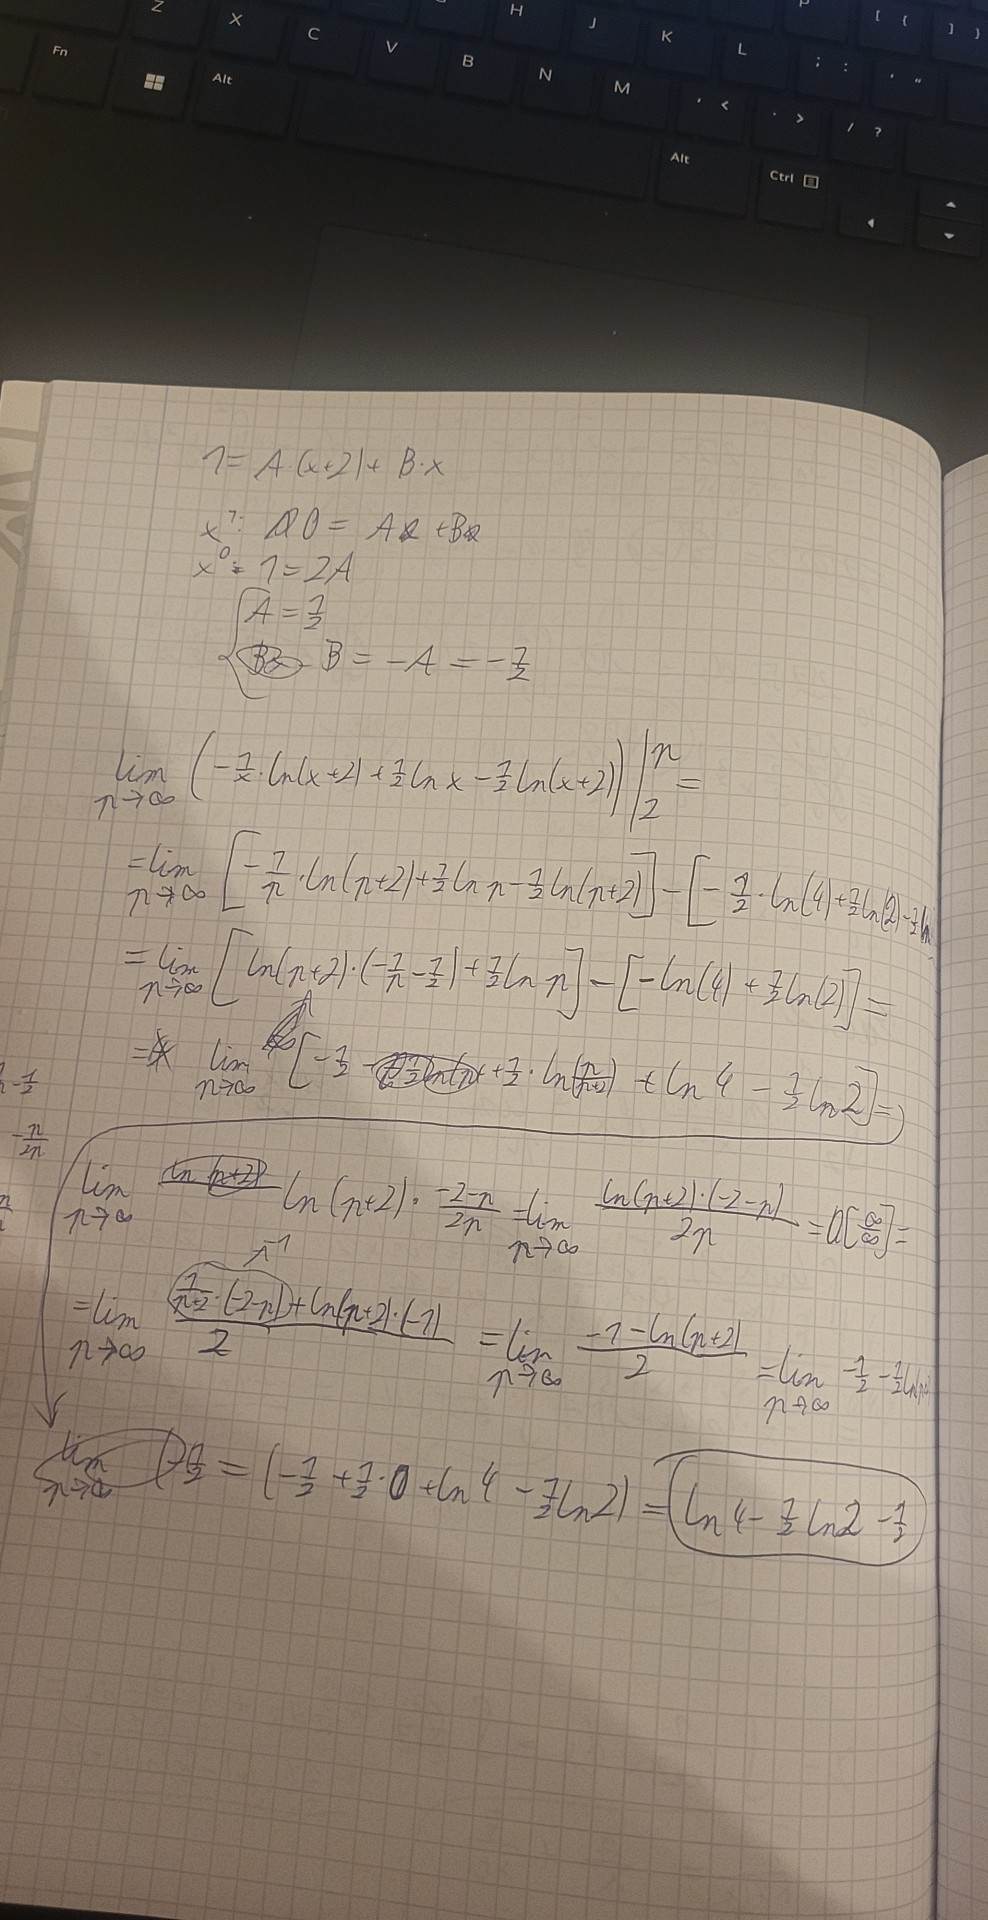 Z X C V B N M H J K L P [ { ] }
Fn Alt ; : ' " , < . > / ?
Alt Ctrl
1 = A·(x+2) + B·x
x¹: 0 = A + B
x⁰: 1 = 2A
A = 1/2
B = -A = -1/2
lim n→∞ (-1/x · ln(x+2) + 1/2 ln x - 1/2 ln(x+2)) |₂ⁿ =
= lim n→∞ [-1/n · ln(n+2) + 1/2 ln n - 1/2 ln(n+2)] - [-1/2 · ln(4) + 1/2 ln(2) - 1/2 ln
= lim n→∞ [ln(n+2)·(-1/n - 1/2) + 1/2 ln n] - [-ln(4) + 1/2 ln(2)] =
= lim n→∞ [-1/2 + 1/2 · ln(n/(n+2)) + ln 4 - 1/2 ln 2] =
lim n→∞ ln(n+2) · (-2-n)/2n = lim n→∞ (ln(n+2)·(-2-n))/2n = [∞/∞] =
= lim n→∞ (1/(n+2) · (-2-n) + ln(n+2)·(-1))/2 = lim n→∞ (-1 - ln(n+2))/2 = lim n→∞ -1/2 - 1/2 ln
= (-1/2 + 1/2 · 0 + ln 4 - 1/2 ln 2) = ln 4 - 1/2 ln 2 - 1/2